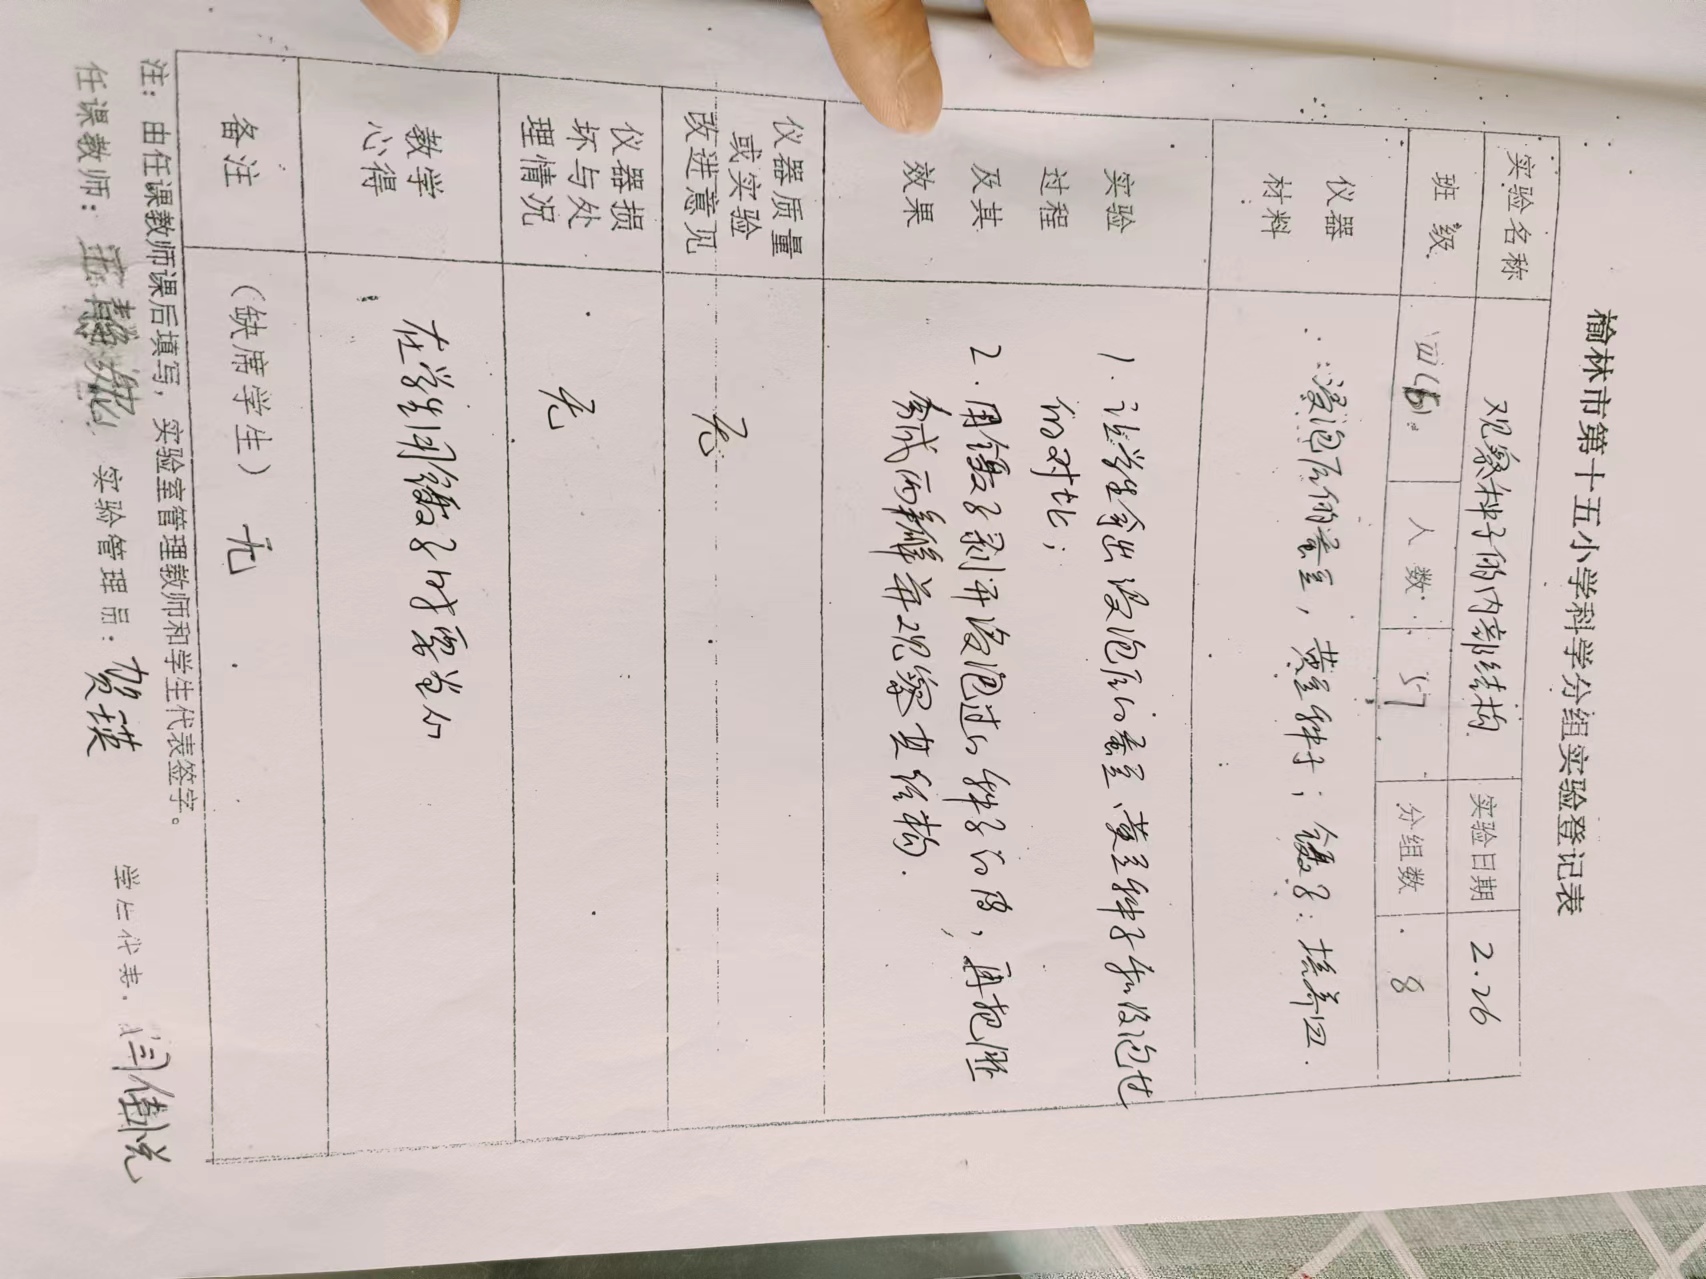 榆林市第十五小学科学分组实验登记表
实验名称 观察种子的内部结构 实验日期 2.26
班级 四(5) 人数 57 分组数 8
仪器材料 浸泡后的蚕豆，黄豆种子；镊子；培养皿.
实验过程及其效果
1.让学生拿出浸泡后的蚕豆、黄豆种子和没泡过
的对比；
2.用镊子剥开浸泡过的种子的皮，再把胚
分成两瓣并观察其结构.
仪器质量或实验改进意见 无
仪器损坏与处理情况 无
教学心得 在学生用镊子时要当心
备注 (缺席学生) 无
注：由任课教师课后填写，实验室管理教师和学生代表签字。
任课教师： 实验管理品：贺瑛 学生代表：闫佳悦